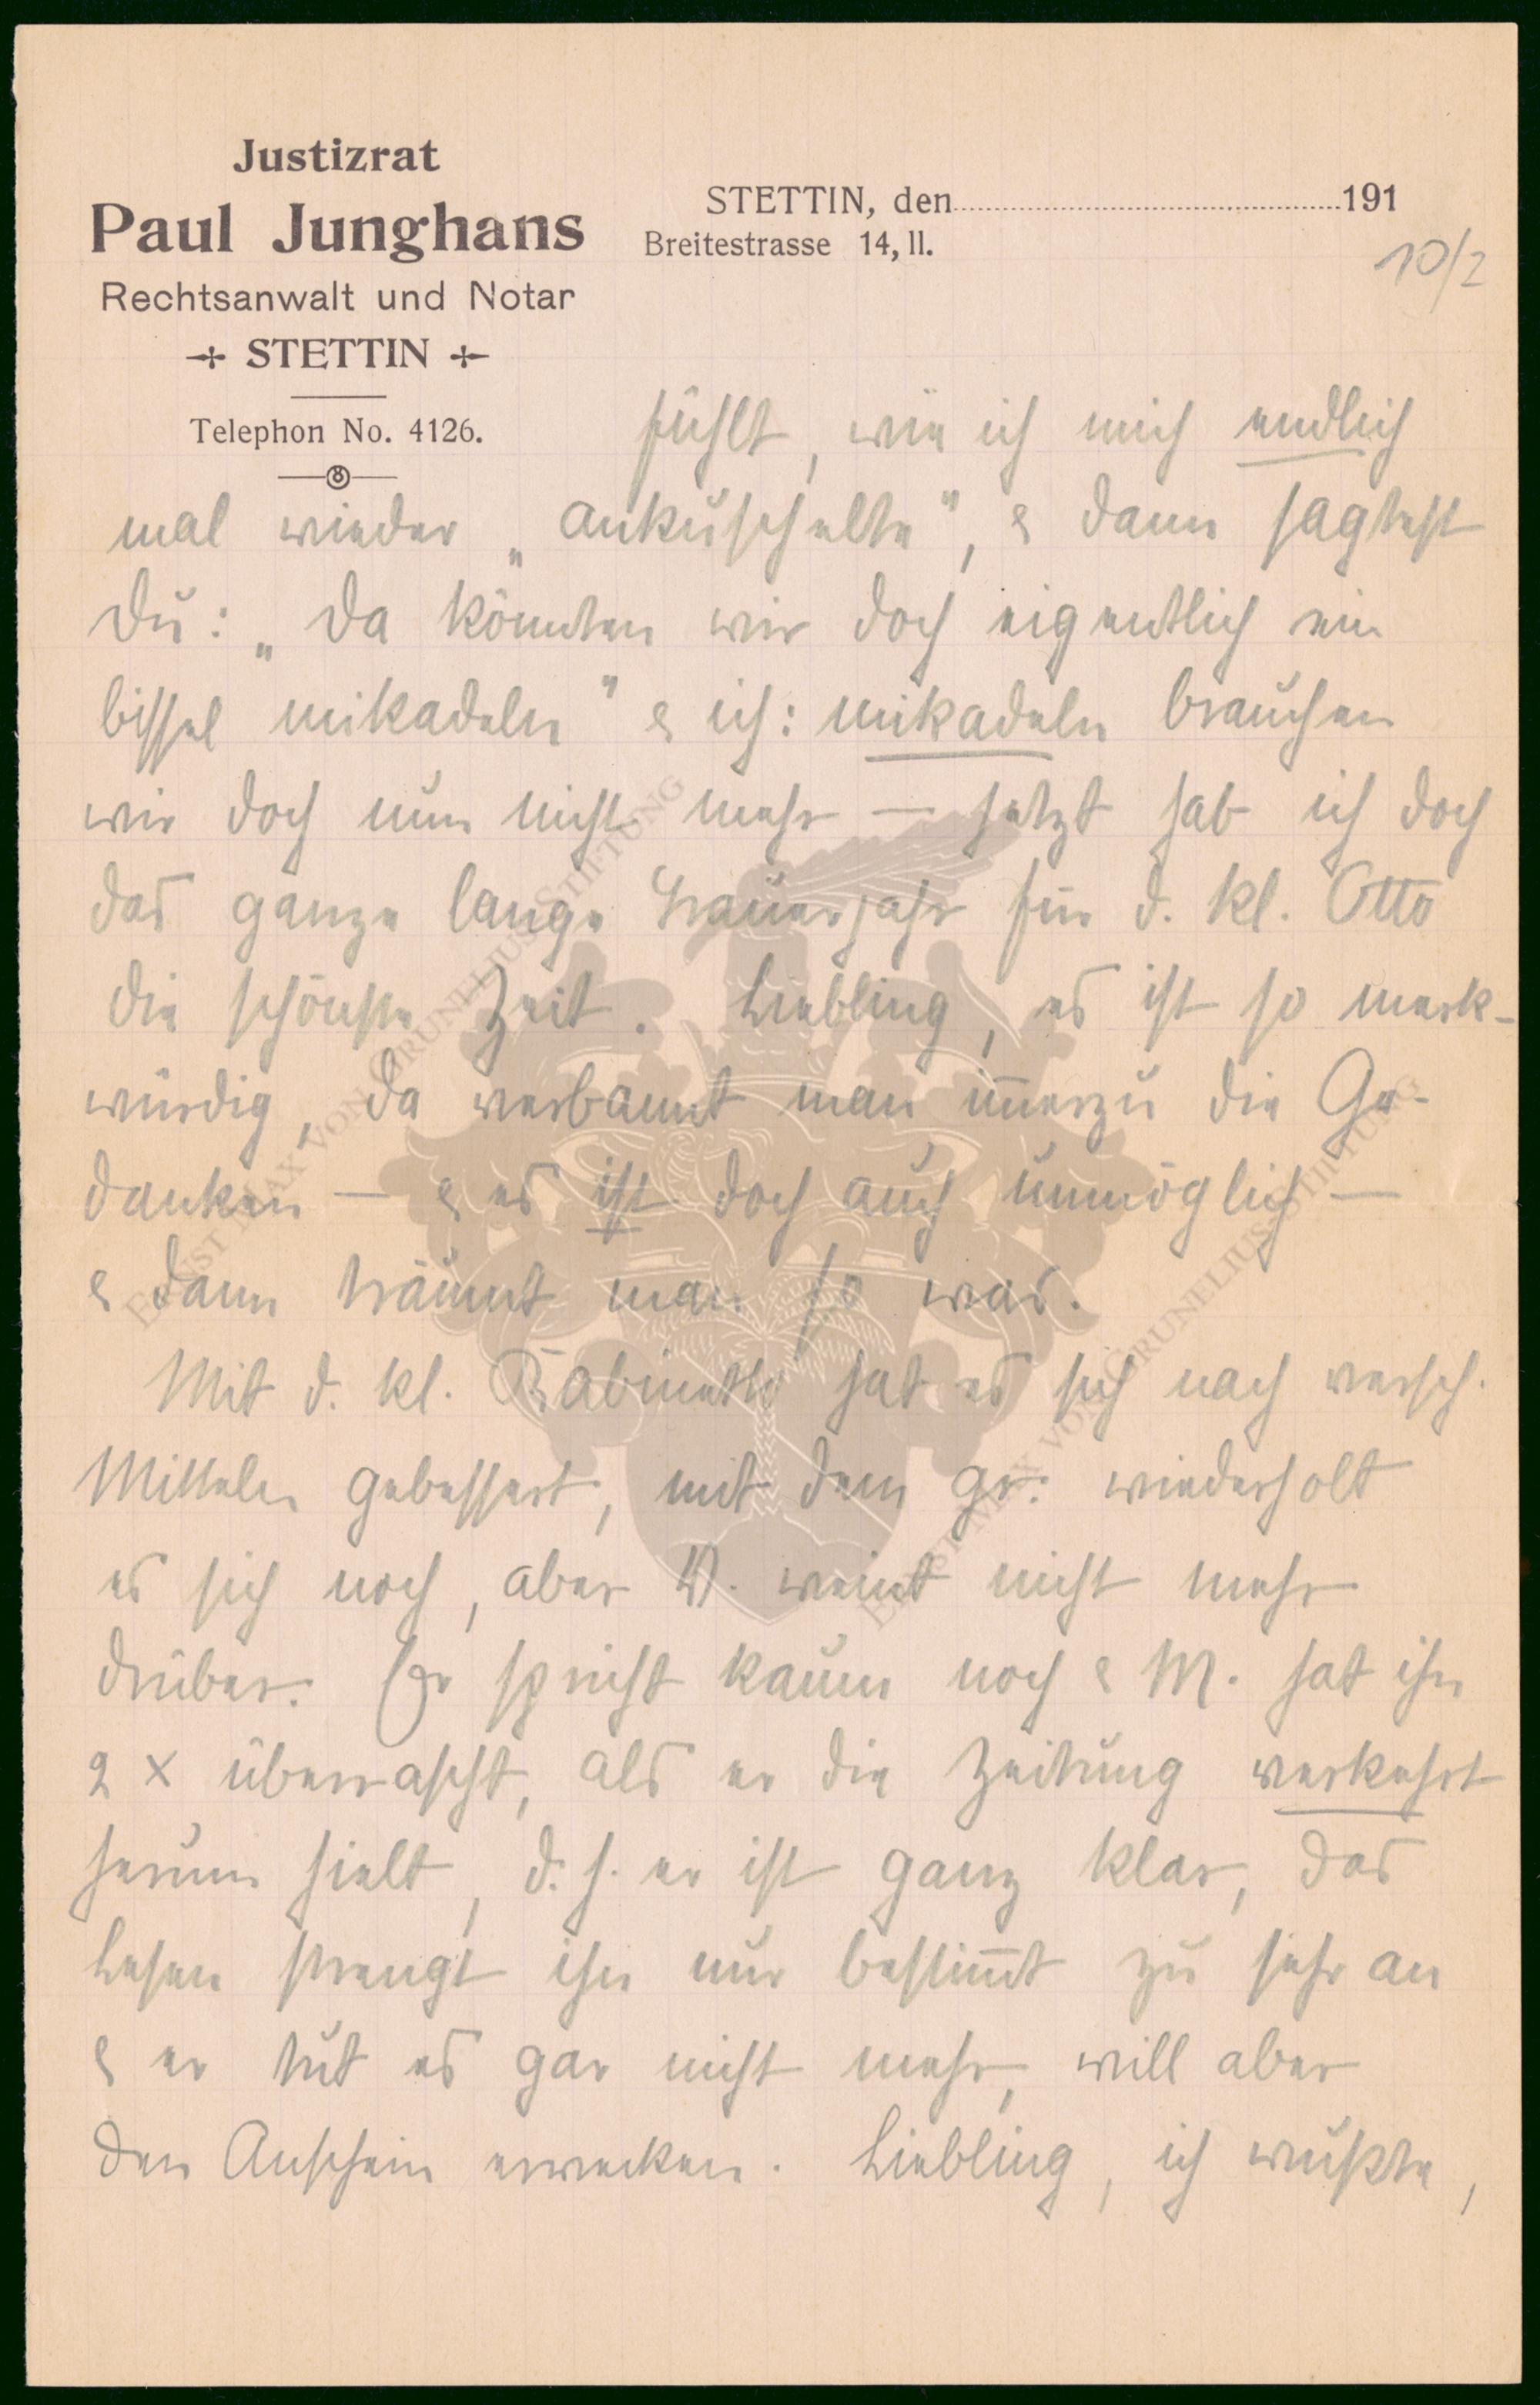 Justizrat
Paul Junghans
Rechtsanwalt und Notar
STETTIN
Telephon No. 4126.
STETTIN, den 191
Breitestrasse 14, II.
10/2
fühlt, wie ich mich endlich
mal wieder „ankuschelte", & dann sagtest
Du: „Da könnten wir doch eigentlich ein
bissel mikadeln" & ich: mikadeln brauchen
wir doch nun nicht mehr — jetzt hab ich doch
das ganze lange Trauerjahr für d. kl. Otto
die schönste Zeit. Liebling, es ist so merk-
würdig, da verbannt man im̅erzu die Ge-
danken — & es ist doch auch unmöglich —
& dann träumt man so was.
Mit d. kl. Kabinetto hat es sich nach versch.
Mitteln gebessert, mit dem gr. wiederholt
es sich noch, aber V. weint nicht mehr
drüber. Er spricht kaum noch & M. hat ihn
2 x überrascht, als er die Zeitung verkehrt
herum hielt, d. h. er ist ganz klar, das
Lesen strengt ihn nur bestim̅t zu sehr an
& er tut es gar nicht mehr, will aber
den Anschein erwecken. Liebling, ich wußte,
ERNST MAX VON GRUNELIUS-STIFTUNG
ERNST MAX VON GRUNELIUS-STIFTUNG